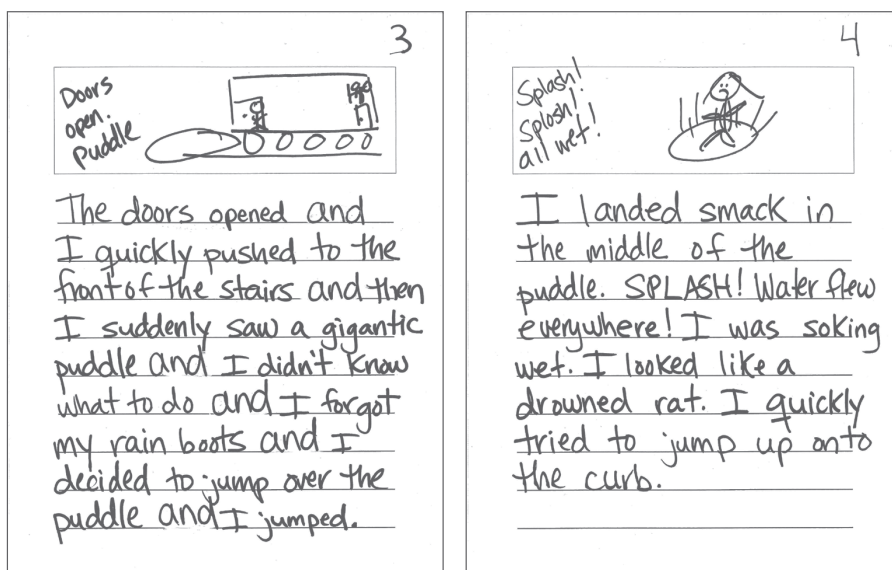 3
Doors
open.
Puddle
The doors opened and
I quickly pushed to the
front of the stairs and then
I suddenly saw a gigantic
puddle and I didn't know
what to do and I forgot
my rain boots and I
decided to jump over the
puddle and I jumped.
4
Splash!
Splosh!
all wet!
I landed smack in
the middle of the
puddle. SPLASH! Water flew
everywhere! I was soking
wet. I looked like a
drowned rat. I quickly
tried to jump up onto
the curb.